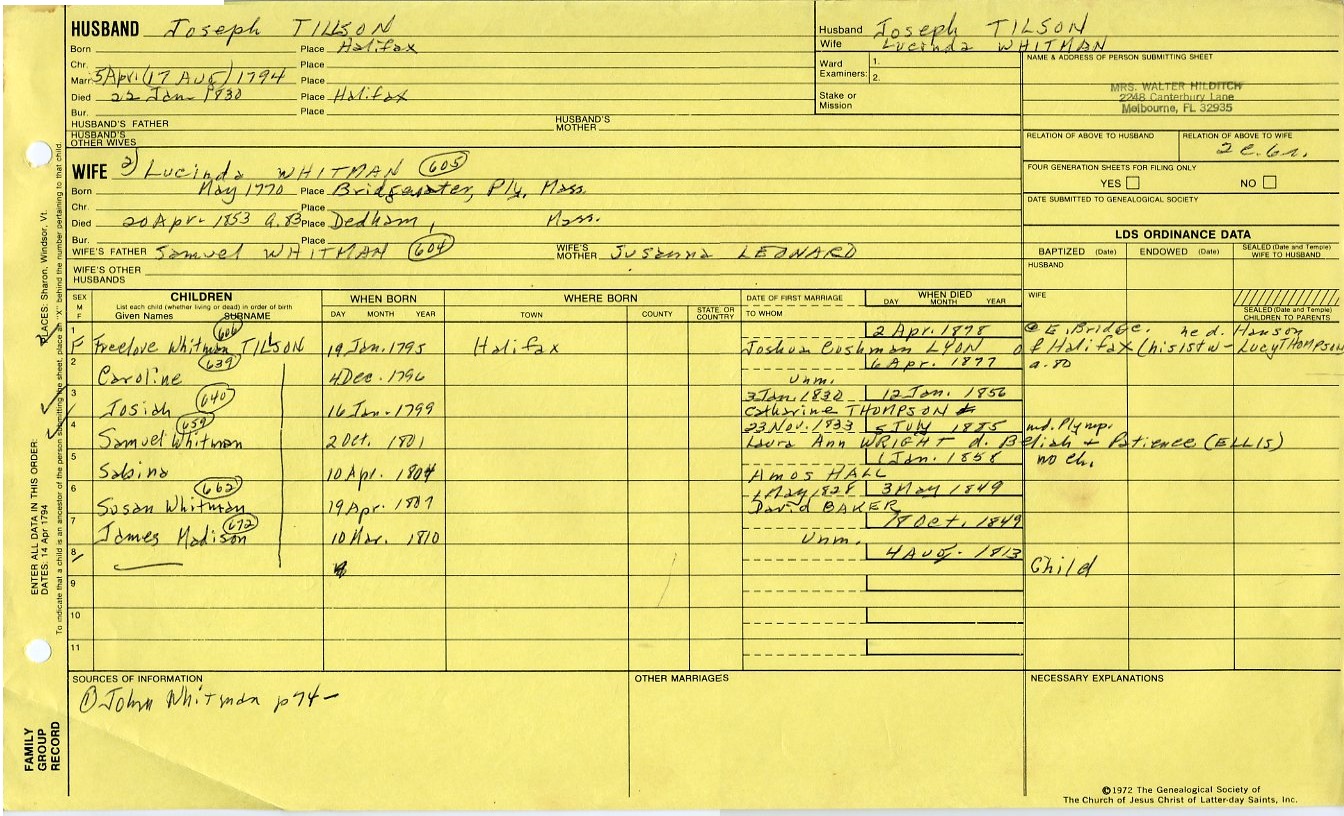 HUSBAND Joseph TILLSON
Born Place Halifax
Chr. Place
Marr. 5 Apr. (17 Aug) 1794 Place
Died 22 Jan 1830 Place Halifax
Bur. Place
HUSBAND'S FATHER HUSBAND'S MOTHER
HUSBAND'S OTHER WIVES
Husband Joseph TILSON
Wife Lucinda WHITMAN
Ward Examiners: 1. 2.
Stake or Mission
NAME & ADDRESS OF PERSON SUBMITTING SHEET
MRS. WALTER HILDITCH
2248 Canterbury Lane
Melbourne, FL 32935
RELATION OF ABOVE TO HUSBAND RELATION OF ABOVE TO WIFE
2c.6r.
FOUR GENERATION SHEETS FOR FILING ONLY
YES NO
DATE SUBMITTED TO GENEALOGICAL SOCIETY
WIFE 2) Lucinda WHITMAN 605
Born May 1770 Place Bridgewater, Ply, Mass.
Chr. Place
Died 20 Apr. 1853 a. 83 Place Dedham, Mass.
Bur. Place
WIFE'S FATHER Samuel WHITMAN 604 WIFE'S MOTHER Susanna LEONARD
WIFE'S OTHER HUSBANDS
LDS ORDINANCE DATA
BAPTIZED (Date) ENDOWED (Date) SEALED (Date and Temple) WIFE TO HUSBAND
HUSBAND
WIFE
SEALED (Date and Temple) CHILDREN TO PARENTS
SEX M F
CHILDREN
List each child (whether living or dead) in order of birth
Given Names SURNAME
WHEN BORN
DAY MONTH YEAR
WHERE BORN
TOWN COUNTY STATE OR COUNTRY
DATE OF FIRST MARRIAGE
TO WHOM
WHEN DIED
DAY MONTH YEAR
1 606 2 Apr. 1878 @ E. Bridge. he d. Hanson
F Freelove Whitman TILSON 19 Jan. 1795 Halifax Joshua Cushman LYON of Halifax (his 1st w - Lucy THOMPSON
2 639 6 Apr. 1877 a. 80
Caroline 4 Dec. 1796 Unm.
3 640 3 Jan. 1830 12 Jan. 1856
Josiah 16 Jan. 1799 Catharine THOMPSON
4 659 23 Nov. 1833 5 July 1885 md. Plymp.
Samuel Whitman 2 Oct. 1801 Laura Ann WRIGHT d. Beliah + Patience (ELLIS)
5 1 Jan. 1858 no ch.
Sabina 10 Apr. 1804 Amos HALL
6 662 1 May 1828 3 May 1849
Susan Whitman 19 Apr. 1807 David BAKER
7 672 18 Oct. 1849
James Madison 10 Mar. 1810 Unm.
8 4 Aug. 1813 Child
9
10
11
SOURCES OF INFORMATION
① John Whitman p 74 —
OTHER MARRIAGES
NECESSARY EXPLANATIONS
©1972 The Genealogical Society of
The Church of Jesus Christ of Latter-day Saints, Inc.
FAMILY GROUP RECORD
ENTER ALL DATA IN THIS ORDER:
DATES: 14 Apr 1794
PLACES: Sharon, Windsor, Vt.
To indicate that a child is an ancestor of the person submitting the sheet, place an "X" behind the number pertaining to that child.